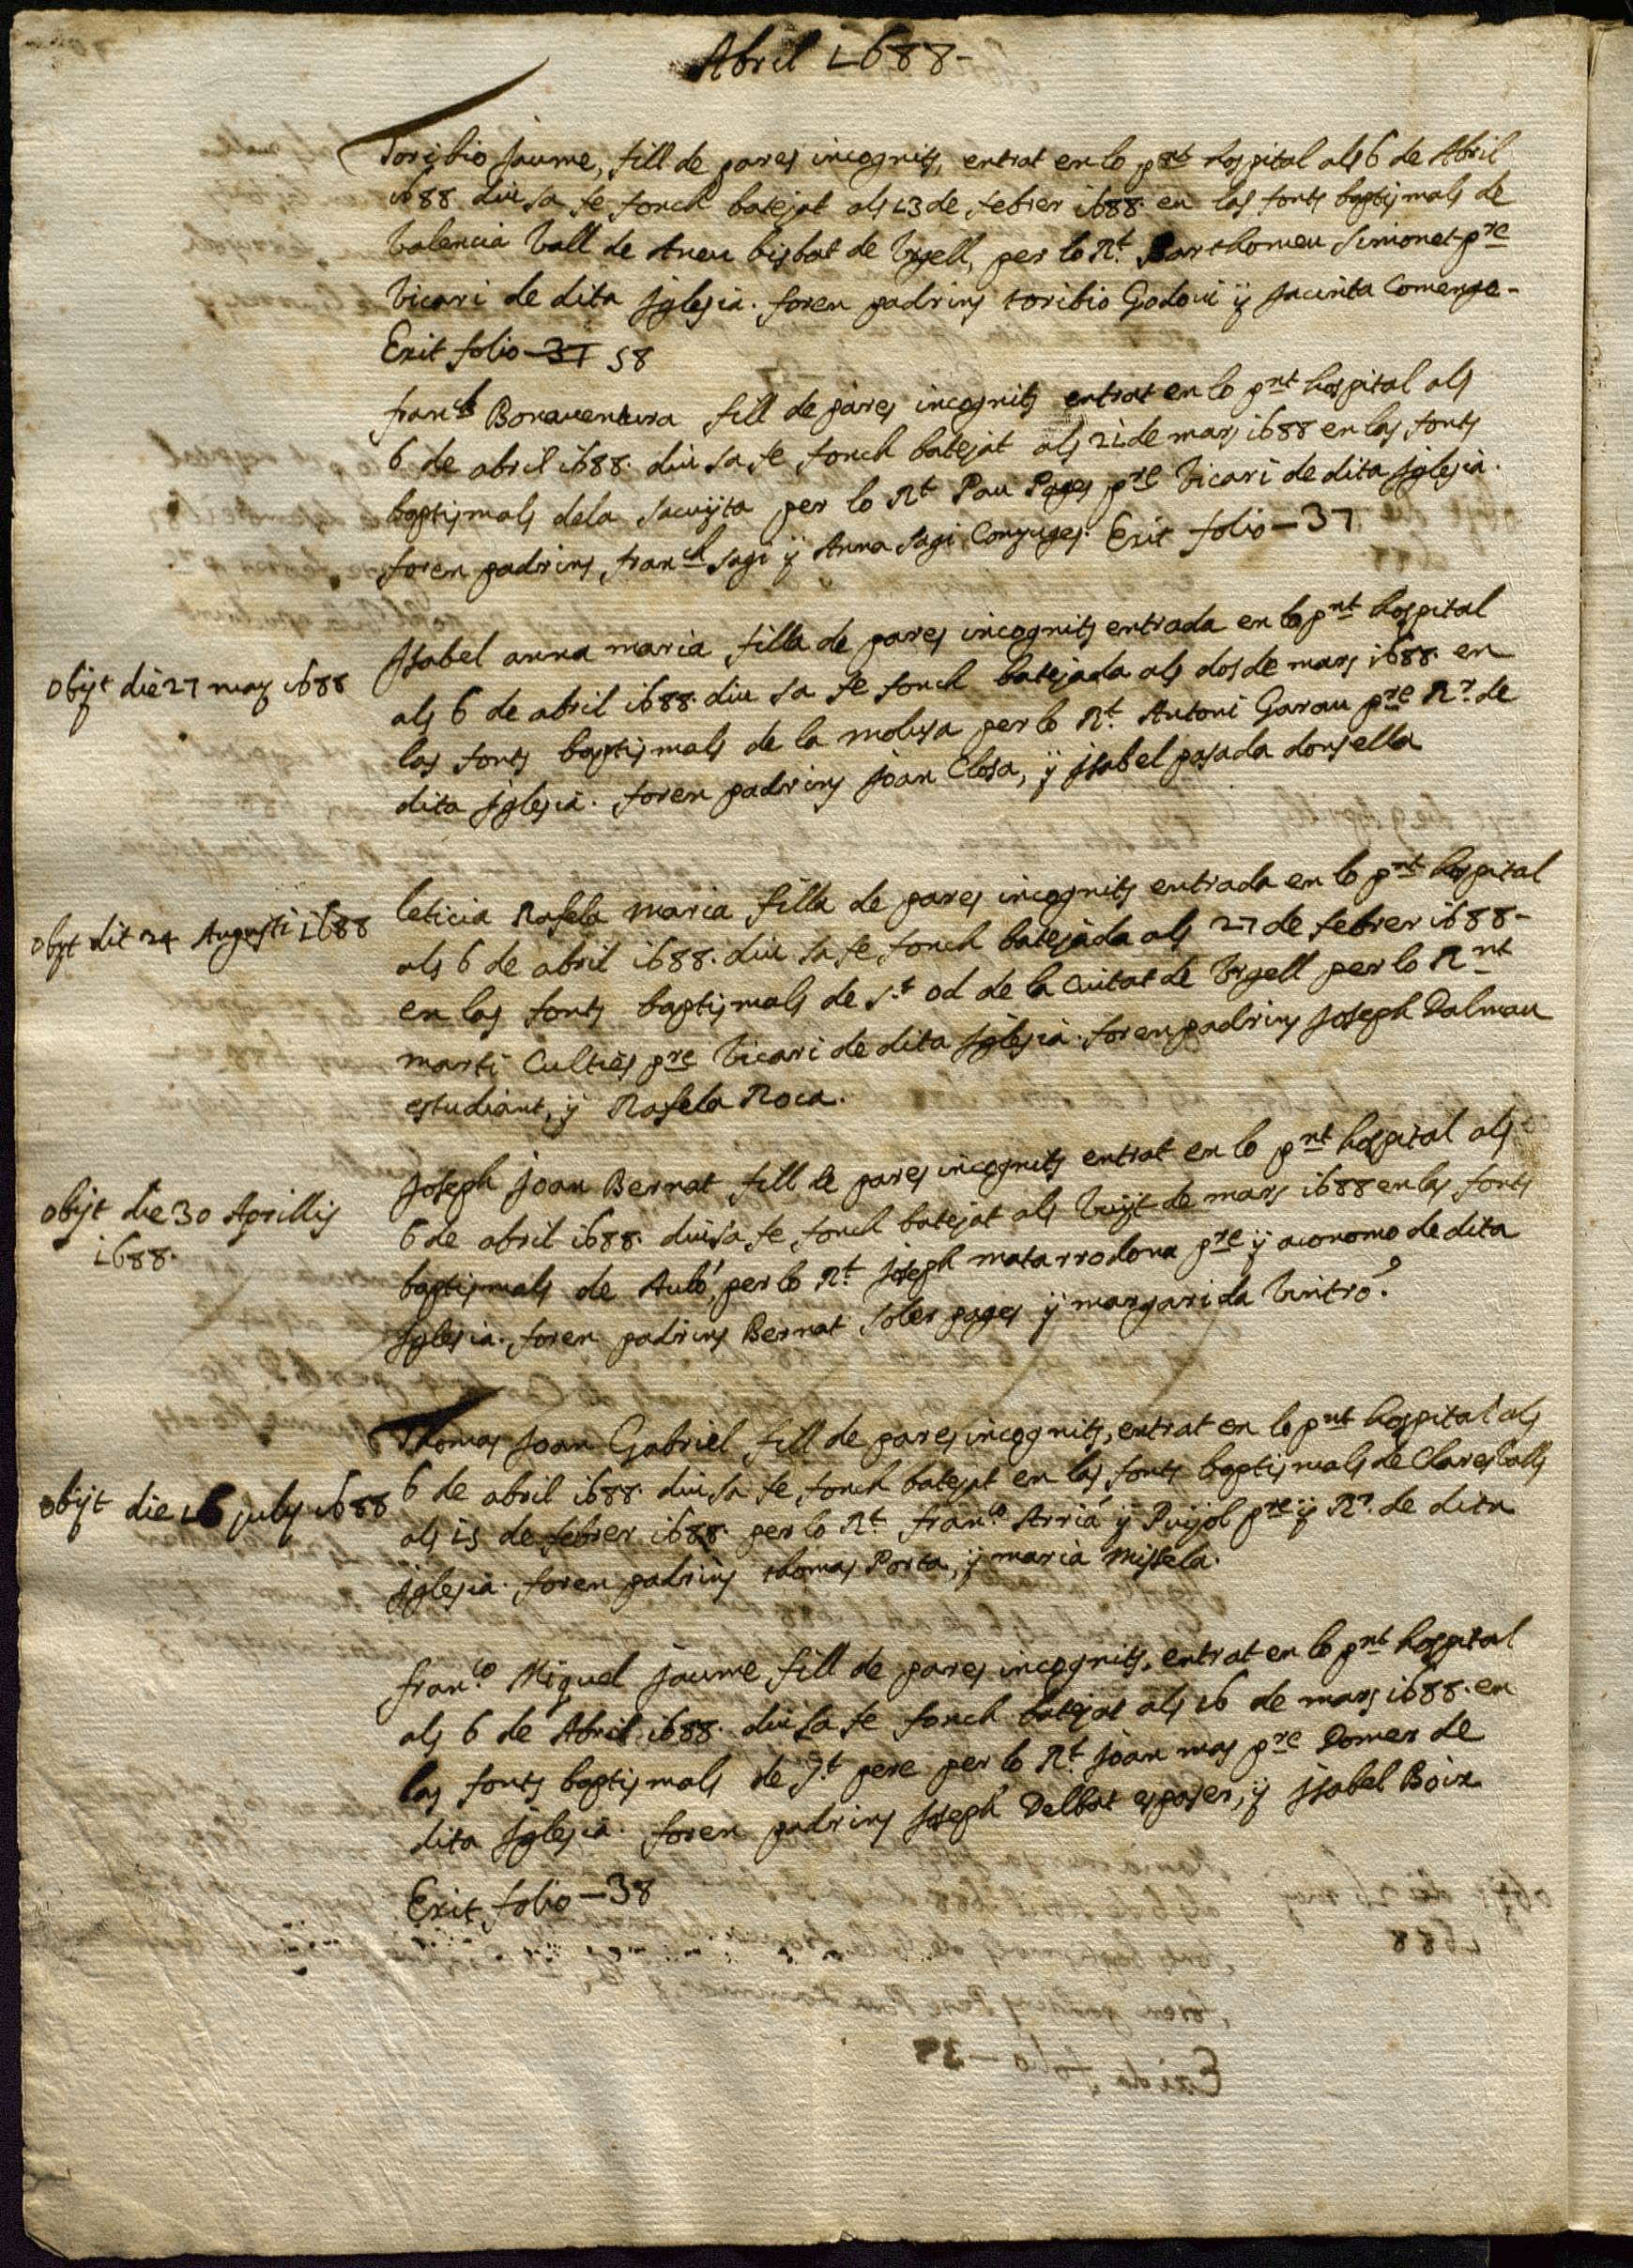 Abril 1688-
Toribio Jaume, fill de pares incognits, entrat en lo pnt hospital als 6 de Abril
1688 diu sa fe fonch batejat als 13 de febrer 1688. en las fonts baptismals de
Valencia Vall de Aneu bisbat de Vrgell, per lo Rt. Barthomeu Simonet pre
Vicari de dita Iglesia. foren padrins toribio Godoui ÿ Jacinta Comenge-
Exit folio - 37 58
franch Bonauentura fill de pares incognits entrat en lo pnt hospital als
6 de abril 1688. diu sa fe fonch batejat als 21 de mars 1688 en las fonts
baptismals dela Pages pre Vicari de dita Iglesia.
foren padrins, franch Sagi ÿ Anna Sagi Conjuges. Exit folio - 37
Isabel anna maria filla de pares incognits entrada en lo pnt hospital
obijt die 27 may 1688
als 6 de abril 1688. diu sa fe fonch batejada als dos de mars 1688. en
las fonts baptismals de la molsosa per lo Rt. Antoni Garau pre Rr. de
dita Iglesia. foren padrins Joan Closa, ÿ Isabel posada donsella
leticia Rafela maria filla de pares incognits entrada en lo pnt hospital
obijt dit 24 Augusti 1688
als 6 de abril 1688. diu sa fe fonch batejada als 27 de febrer 1688-
en las fonts baptismals de St. od de la Ciutat de Vrgell per lo Rnt
marti Culties pre Vicari de dita Iglesia. foren padrins Joseph Dalmau
estudiant, ÿ Rafela Roca.
Joseph Joan Bernat fill de pares incognits entrat en lo pnt hospital als
obijt die 30 Aprillis
1688.
6 de abril 1688. diu sa fe fonch batejat als Vuÿt de mars 1688 en las fonts
baptismals de per lo Rt. Joseph matarrodona pre ÿ aconomo de dita
Iglesia. foren padrins Bernat Soler pages ÿ margarida Vintró.
Thomas Joan Gabriel fill de pares incognits, entrat en lo pnt hospital als
obijt die 16 july 1688
6 de abril 1688. diu sa fe fonch batejat en las fonts baptismals de Claresvalls
als 15 de febrer 1688. per lo Rt. franco. Arria ÿ Puÿol pre ÿ Rr. de dita
Iglesia. foren padrins thomas Porta, ÿ maria Missela.
franco. Miquel Jaume fill de pares incognits, entrat en lo pnt hospital
als 6 de Abril 1688. diu sa fe fonch batejat als 16 de mars 1688. en
las fonts baptismals de St. pere per lo Rt. Joan mas pre Domer de
dita Iglesia. foren padrins Joseph Delbat espaser, ÿ Isabel Boix
Exit folio - 38